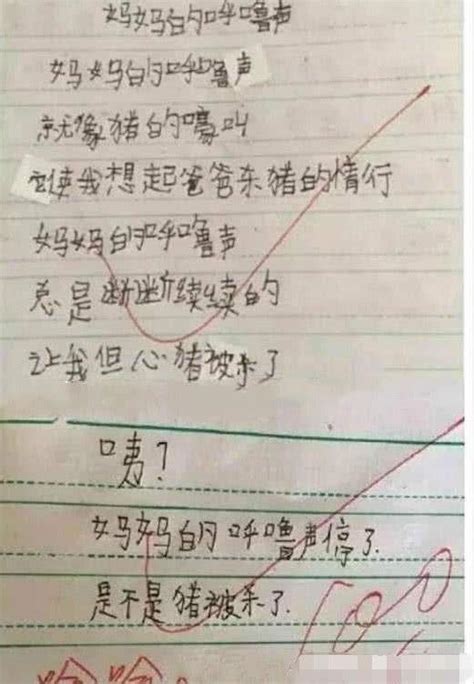 妈妈的呼噜声
妈妈的呼噜声
京尤像猪的嚎叫
这使我想起爸爸杀猪的情行
妈妈的呼噜声
总是断断续续的
让我但心猪被杀了
咦?
妈妈的呼噜声停了
是不是猪被杀了.
100